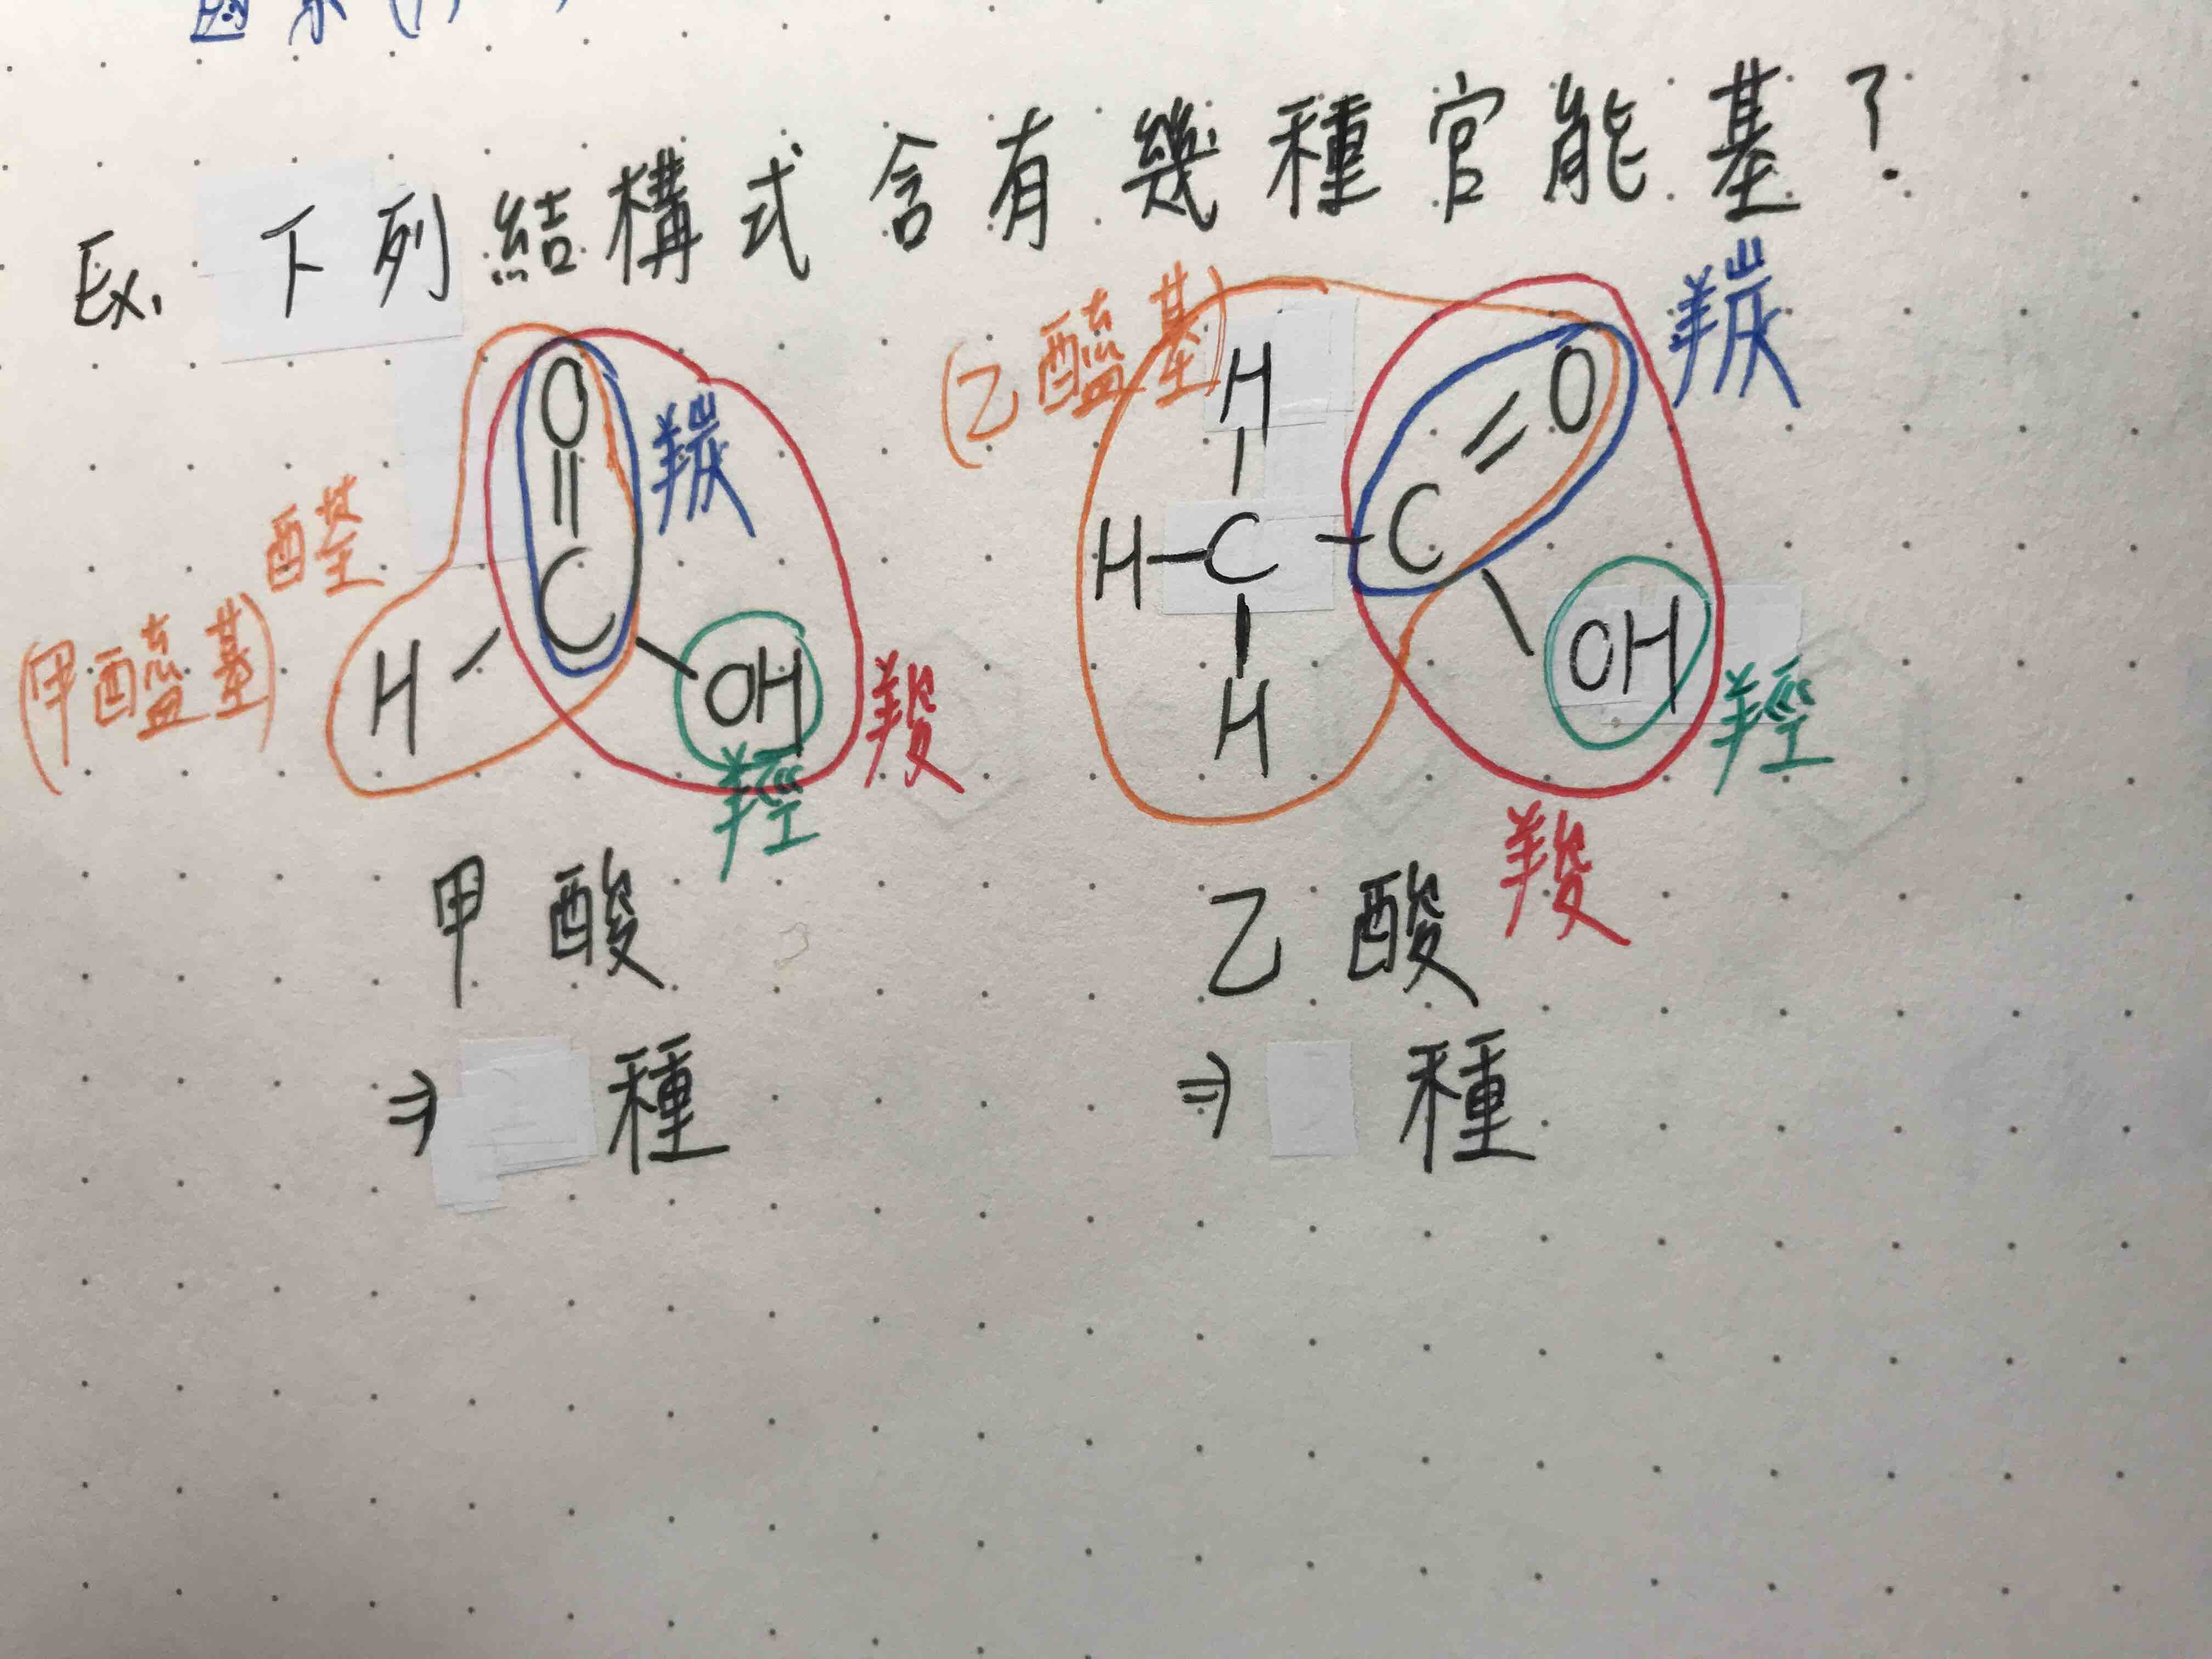 Ex. 下列結構式含有幾種官能基？
(乙醯基)
羰
H
O
H
O
羰
C
醛
H-C-C
(甲醯基)
H
C
OH
OH
羧
H
羥
羥
羧
甲酸
乙酸
⇒ 種
⇒ 種